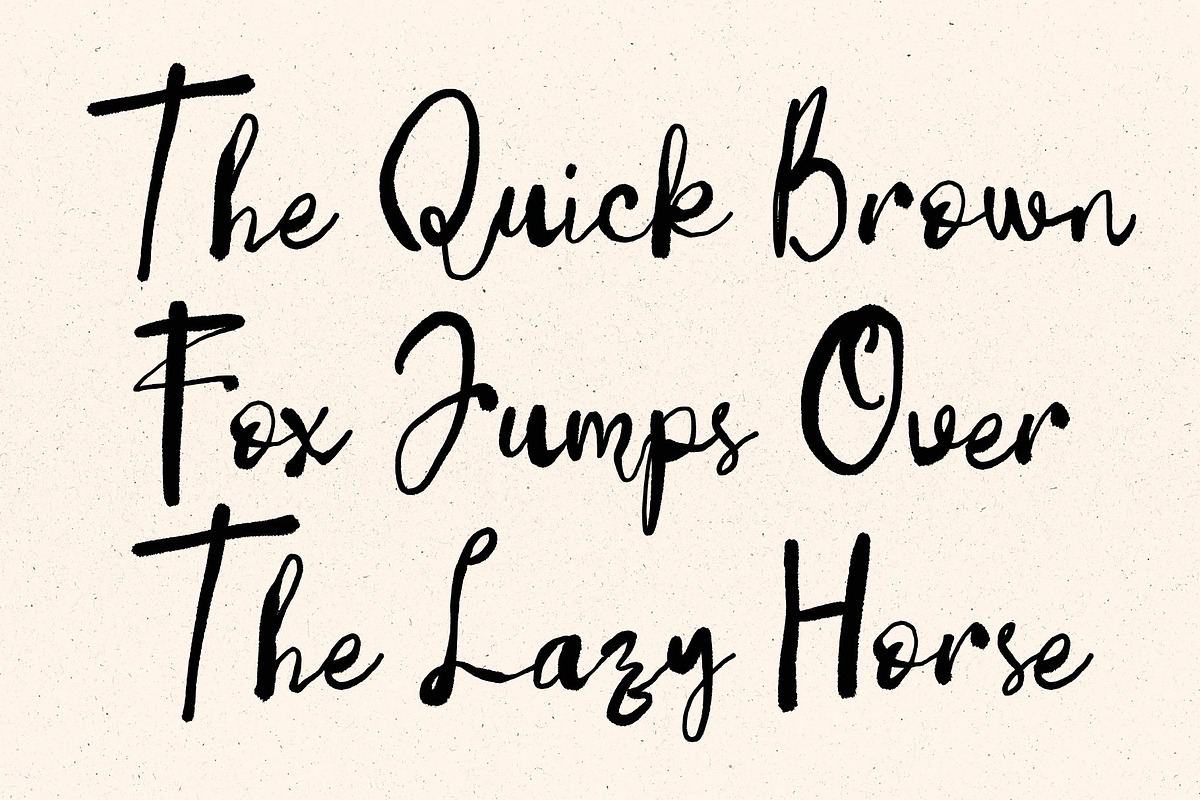 The Quick Brown
Fox Jumps Over
The Lazy Horse